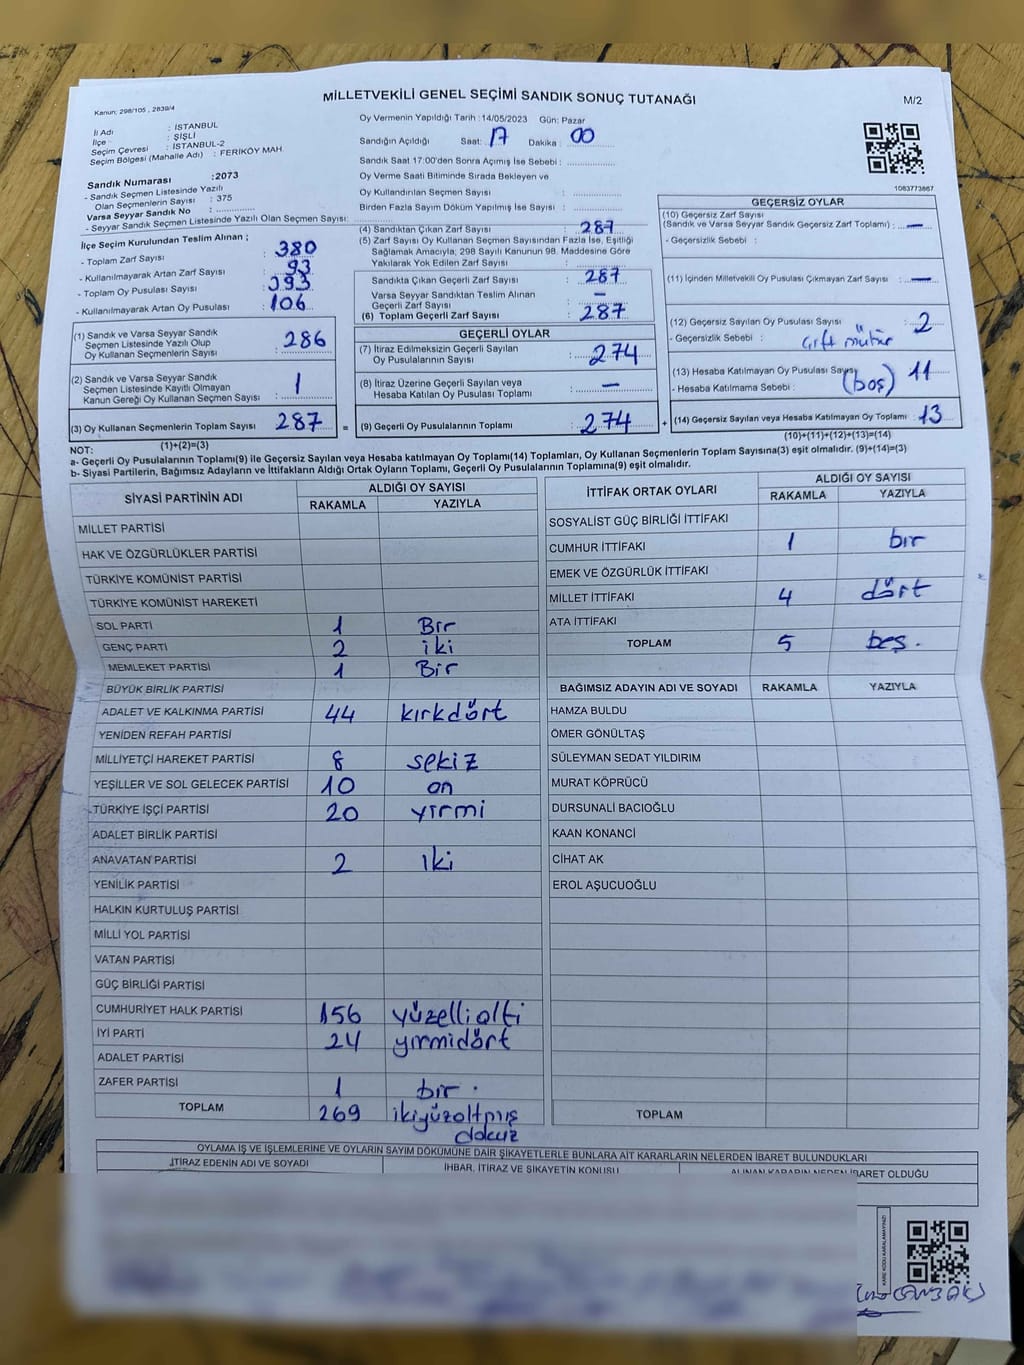 MİLLETVEKİLİ GENEL SEÇİMİ SANDIK SONUÇ TUTANAĞI
M/2
Kanun; 298/105 , 2839/4
İl Adı : İSTANBUL
İlçe : ŞİŞLİ
Seçim Çevresi : İSTANBUL-2
Seçim Bölgesi (Mahalle Adı) : FERİKÖY MAH.
Sandık Numarası :2073
- Sandık Seçmen Listesinde Yazılı
Olan Seçmenlerin Sayısı : 375
Varsa Seyyar Sandık No :
- Seyyar Sandık Seçmen Listesinde Yazılı Olan Seçmen Sayısı:
İlçe Seçim Kurulundan Teslim Alınan ;
- Toplam Zarf Sayısı : 380
- Kullanılmayarak Artan Zarf Sayısı : 93
- Toplam Oy Pusulası Sayısı : 393
- Kullanılmayarak Artan Oy Pusulası : 106
(1) Sandık ve Varsa Seyyar Sandık
Seçmen Listesinde Yazılı Olup
Oy Kullanan Seçmenlerin Sayısı : 286
(2) Sandık ve Varsa Seyyar Sandık
Seçmen Listesinde Kayıtlı Olmayan
Kanun Gereği Oy Kullanan Seçmen Sayısı : 1
(3) Oy Kullanan Seçmenlerin Toplam Sayısı : 287
(1)+(2)=(3)
Oy Vermenin Yapıldığı Tarih : 14/05/2023 Gün: Pazar
Sandığın Açıldığı Saat: 17 Dakika : 00
Sandık Saat 17:00'den Sonra Açımış İse Sebebi :
Oy Verme Saati Bitiminde Sırada Bekleyen ve
Oy Kullandırılan Seçmen Sayısı :
Birden Fazla Sayım Döküm Yapılmış İse Sayısı :
(4) Sandıktan Çıkan Zarf Sayısı : 287
(5) Zarf Sayısı Oy Kullanan Seçmen Sayısından Fazla İse, Eşitliği
Sağlamak Amacıyla; 298 Sayılı Kanunun 98. Maddesine Göre
Yakılarak Yok Edilen Zarf Sayısı :
Sandıkta Çıkan Geçerli Zarf Sayısı : 287
Varsa Seyyar Sandıktan Teslim Alınan
Geçerli Zarf Sayısı : –
(6) Toplam Geçerli Zarf Sayısı : 287
GEÇERLİ OYLAR
(7) İtiraz Edilmeksizin Geçerli Sayılan
Oy Pusulalarının Sayısı : 274
(8) İtiraz Üzerine Geçerli Sayılan veya
Hesaba Katılan Oy Pusulası Toplamı : –
= (9) Geçerli Oy Pusulalarının Toplamı : 274
1083773867
GEÇERSİZ OYLAR
(10) Geçersiz Zarf Sayısı
(Sandık ve Varsa Seyyar Sandık Geçersiz Zarf Toplamı) : –
- Geçersizlik Sebebi :
(11) İçinden Milletvekili Oy Pusulası Çıkmayan Zarf Sayısı : –
(12) Geçersiz Sayılan Oy Pusulası Sayısı : 2
- Geçersizlik Sebebi : çift mühür
(13) Hesaba Katılmayan Oy Pusula Sayısı : 11
- Hesaba Katılmama Sebebi : (boş)
+ (14) Geçersiz Sayılan veya Hesaba Katılmayan Oy Toplamı : 13
(10)+(11)+(12)+(13)=(14)
NOT:
a- Geçerli Oy Pusulasının Toplamı(9) ile Geçersiz Sayılan veya Hesaba katılmayan Oy Toplamı(14) Toplamları, Oy Kullanan Seçmenlerin Toplam Sayısına(3) eşit olmalıdır. (9)+(14)=(3)
b- Siyasi Partilerin, Bağımsız Adayların ve İttifakların Aldığı Ortak Oyların Toplamı, Geçerli Oy Pusulalarının Toplamına(9) eşit olmalıdır.
SİYASİ PARTİNİN ADI ALDIĞI OY SAYISI
RAKAMLA YAZIYLA
MİLLET PARTİSİ
HAK VE ÖZGÜRLÜKLER PARTİSİ
TÜRKİYE KOMÜNİST PARTİSİ
TÜRKİYE KOMÜNİST HAREKETİ
SOL PARTİ 1 Bir
GENÇ PARTİ 2 iki
MEMLEKET PARTİSİ 1 Bir
BÜYÜK BİRLİK PARTİSİ
ADALET VE KALKINMA PARTİSİ 44 kırkdört
YENİDEN REFAH PARTİSİ
MİLLİYETÇİ HAREKET PARTİSİ 8 sekiz
YEŞİLLER VE SOL GELECEK PARTİSİ 10 on
TÜRKİYE İŞÇİ PARTİSİ 20 yirmi
ADALET BİRLİK PARTİSİ
ANAVATAN PARTİSİ 2 iki
YENİLİK PARTİSİ
HALKIN KURTULUŞ PARTİSİ
MİLLİ YOL PARTİSİ
VATAN PARTİSİ
GÜÇ BİRLİĞİ PARTİSİ
CUMHURİYET HALK PARTİSİ 156 yüzellialti
İYİ PARTİ 24 yirmidört
ADALET PARTİSİ
ZAFER PARTİSİ 1 bir .
TOPLAM 269 ikiyüzaltmış
dokuz
İTTİFAK ORTAK OYLARI ALDIĞI OY SAYISI
RAKAMLA YAZIYLA
SOSYALİST GÜÇ BİRLİĞİ İTTİFAKI
CUMHUR İTTİFAKI 1 bir
EMEK VE ÖZGÜRLÜK İTTİFAKI
MİLLET İTTİFAKI 4 dört
ATA İTTİFAKI
TOPLAM 5 beş.
BAĞIMSIZ ADAYIN ADI VE SOYADI RAKAMLA YAZIYLA
HAMZA BULDU
ÖMER GÖNÜLTAŞ
SÜLEYMAN SEDAT YILDIRIM
MURAT KÖPRÜCÜ
DURSUNALİ BACIOĞLU
KAAN KONANCİ
CİHAT AK
EROL AŞUCUOĞLU
TOPLAM
OYLAMA İŞ VE İŞLEMLERİNE VE OYLARIN SAYIM DÖKÜMÜNE DAİR ŞİKAYETLERLE BUNLARA AİT KARARLARIN NELERDEN İBARET BULUNDUKLARI
İTİRAZ EDENİN ADI VE SOYADI İHBAR, İTİRAZ VE ŞİKAYETİN KONUSU ALINAN KARARIN NEDEN İBARET OLDUĞU
KARE KODU KARALAMAYINIZ!